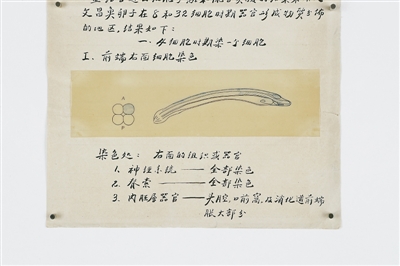 文昌类卵子在8和32细胞时期器官形成物质分佈
的地区,结果如下:
一. 4细胞时期染一个细胞
I. 前端右面细胞染色
A
P
染色处: 右面的组织或器官
1. 神经系统——全部染色
2. 脊索——全部染色
3. 内胚层器官——头腔,口前窝,及消化道前端
腹大部分